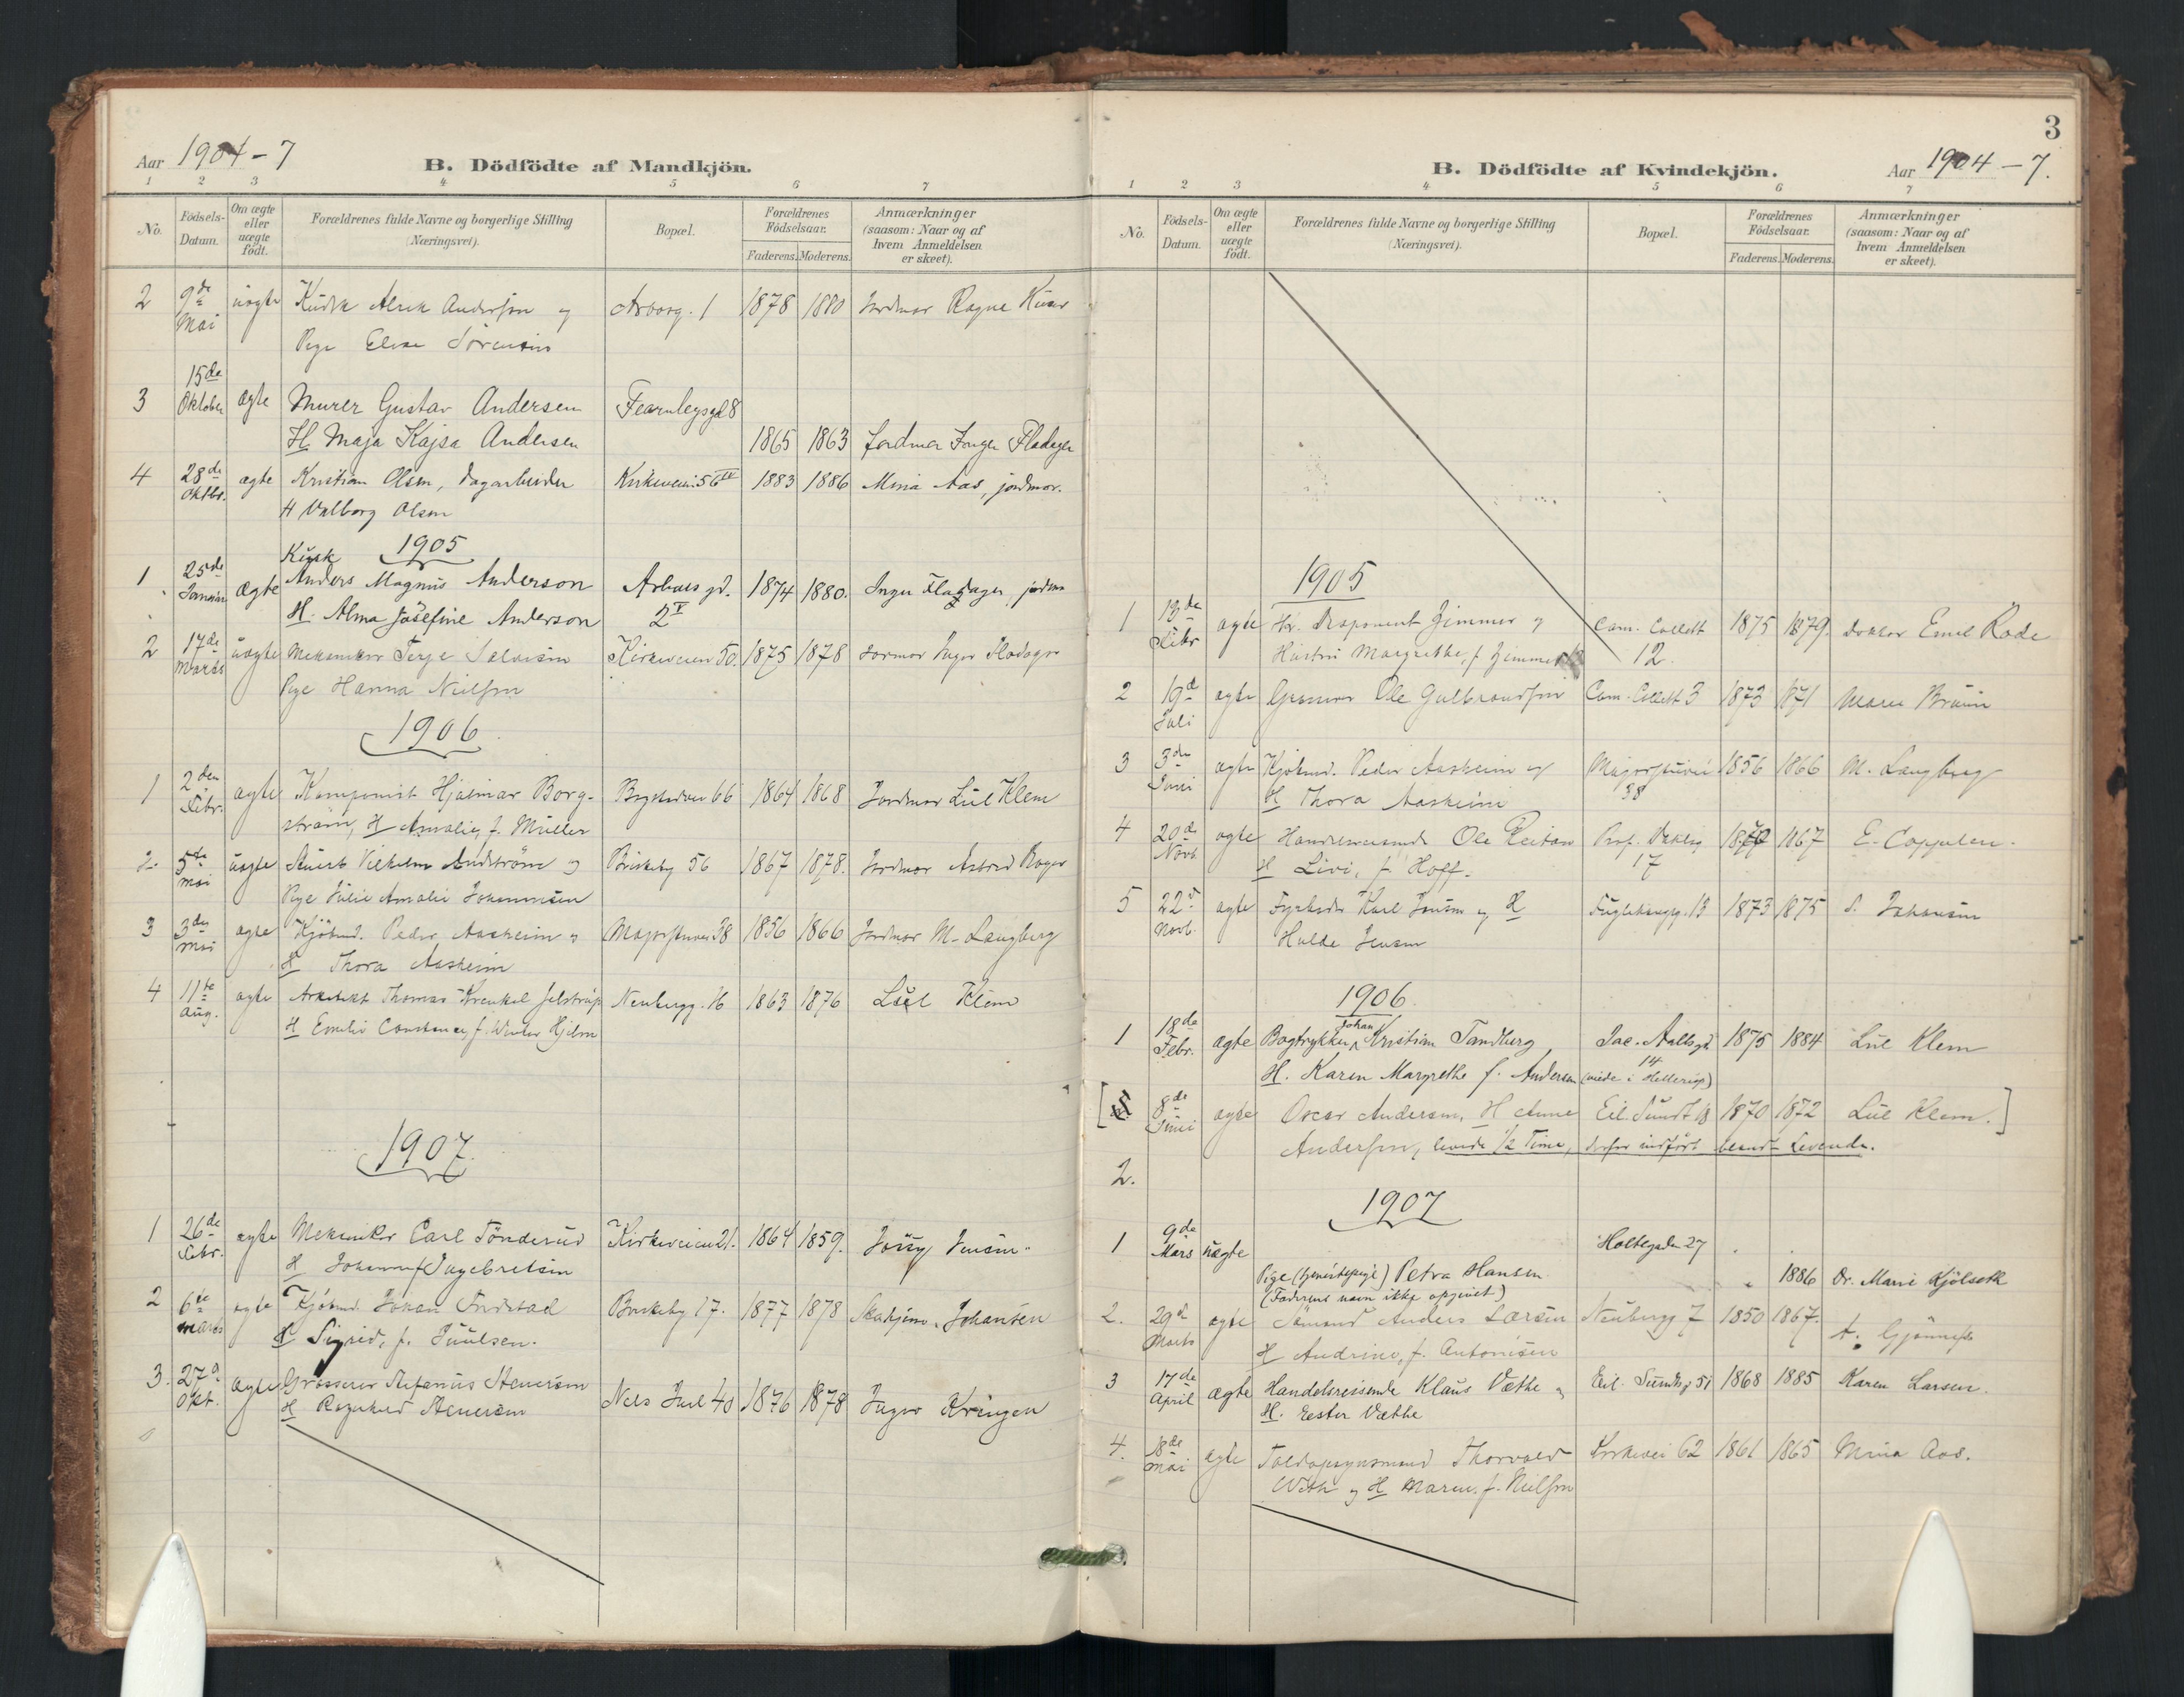 Aar 1904-7
B. Dödfödte af Mandkjön.
1 2 3 4 5 6 7
No.
Födsels-Datum.
Om ægte eller uægte födt.
Forældrenes fulde Navne og borgerlige Stilling (Næringsvei).
Bopæl.
Forældrenes Födselsaar.
Faderens. Moderens.
Anmærkninger (saasom: Naar og af hvem Anmeldelsen er skeet).
2 9de Mai uægte Kusk Anderssen og 1 1878 1880 Jordmor Ragna
Pige Elise Sörensen
3 15de Oktober ægte Murer Gustav Andersen Fearnleysgd 8
H Maja Kajsa Andersen 1865 1863 Jordmor Inger Fladager
4 28de Oktbr. ægte Kristian Olsen, dagarbeider Kirkeveien 56 IV 1883 1886 Mina Aas, jordmor.
H Valborg Olsen
1905
Kusk
1 25de Januar ægte Anders Magnus Anderson Arboes gd. 1874 1880. Inger Fladager, jordmor
H. Alma Josefine Anderson 2 V
2 17de Marts uægte Mekaniker Terje Kirkeveien 50. 1875 1878 Jormor Inger Fladager
Pige Hanna Nielssen
1906
1 2den Febr. ægte Komponist Hjalmar Borg- Bogstadvei 66 1864 1868 Jordmor Lul Klem
ström, H Amalie, f. Müller
2 5te Mai uægte Vilhelm Andström og Briskeby 56 1867 1878. Jordmor Astrid
Pige Julie Amalie Johannesen
3 3die Mai ægte Kjöbmd. Peder Aasheim og Majorstuvei 38 1856 1866 Jordmor M. Langberg
H Thora Aasheim
4 11te Aug. ægte Arkitekt Thomas Jelstrup Neubergg. 16 1863 1876 Lul Klem
H Emilie Constance, f. Winter Hjelm
1907.
1 26de Febr. ægte Mekaniker Carl Tönderud Kirkeveien 21. 1864 1859. Jensen.
H Johanne f Ingebretsen
2 6te Marts ægte Kjöbmd. Johan Briskeby 17. 1877 1878 Johansen
H Sigrid, f. Juulsen.
3. 27d Okt. ægte Grosserer Stefanus Stenersen Nels Juel 40 1876 1878 Inger Kringen
H Ragnhild Stenersen
3
B. Dödfödte af Kvindekjön.
Aar 1904-7.
1 2 3 4 5 6 7
No.
Födsels-Datum.
Om ægte eller uægte födt.
Forældrenes fulde Navne og borgerlige Stilling (Næringsvei).
Bopæl.
Forældrenes Födselsaar.
Faderens. Moderens.
Anmærkninger (saasom: Naar og af hvem Anmeldelsen er skeet).
1905
1 13de Febr ægte Hr. Disponent Zimmer og Cam. Collett 1875 1879. Doktor Emil Rode
Hustru Margrethe, f. Zimmer 12.
2 19d Juli ægte Ole Gulbrandsen Cam. Collett 3 1873 1871 Maren Bruun
3 3die Juni ægte Kjöbmd. Peder Aasheim og Majorstuvei 1856 1866 M. Langberg
H Thora Aasheim 38
4 20de Novb. ægte Handelsreisende Ole Reitan Prof. Dahlsg 1867 E. Cappelen.
H Livi, f. Hoff. 17
5 22d Novb. ægte Fyrböder Karl Jensen og H Fuglehaugg. 13 1873 1875 S. Johansen
Hulda Jensen
1906.
1 18de Febr. ægte Bogtrykker Johan Kristian Sandberg Jac. Aallsgd 1875 1884 Lul Klem
H. Karen Margrethe f. Andersen 14 (viede i Hellerup)
[ 8de Juni ægte Oscar Andersen, H Anna Eil. Sundt 18 1870 1872 Lul Klem. ]
Anderssen, levede 1/2 Time, derfor indfört blandt Levende.
2.
1907
1 9de Mars uægte Holtegaden 27
Pige (tjenestepige) Petra Hansen " 1886 Dr. Marie Kjölseth
(Faderens navn ikke opgivet)
2. 29d Marts ægte Sömand Anders Larsen Neubergg 7 1850 1867. A.
H Andrine, f. Antonisen
3 17de April ægte Handelsreisende Klaus Vethe og Eil. Sundtsg 51 1868 1885 Karen Larsen.
H. Ester Vethe
4. 18de Mai ægte Toldopsynsmand Thorvald Kirkevei 62 1861 1865 Mina Aas.
With og H Maren f. Nielssen